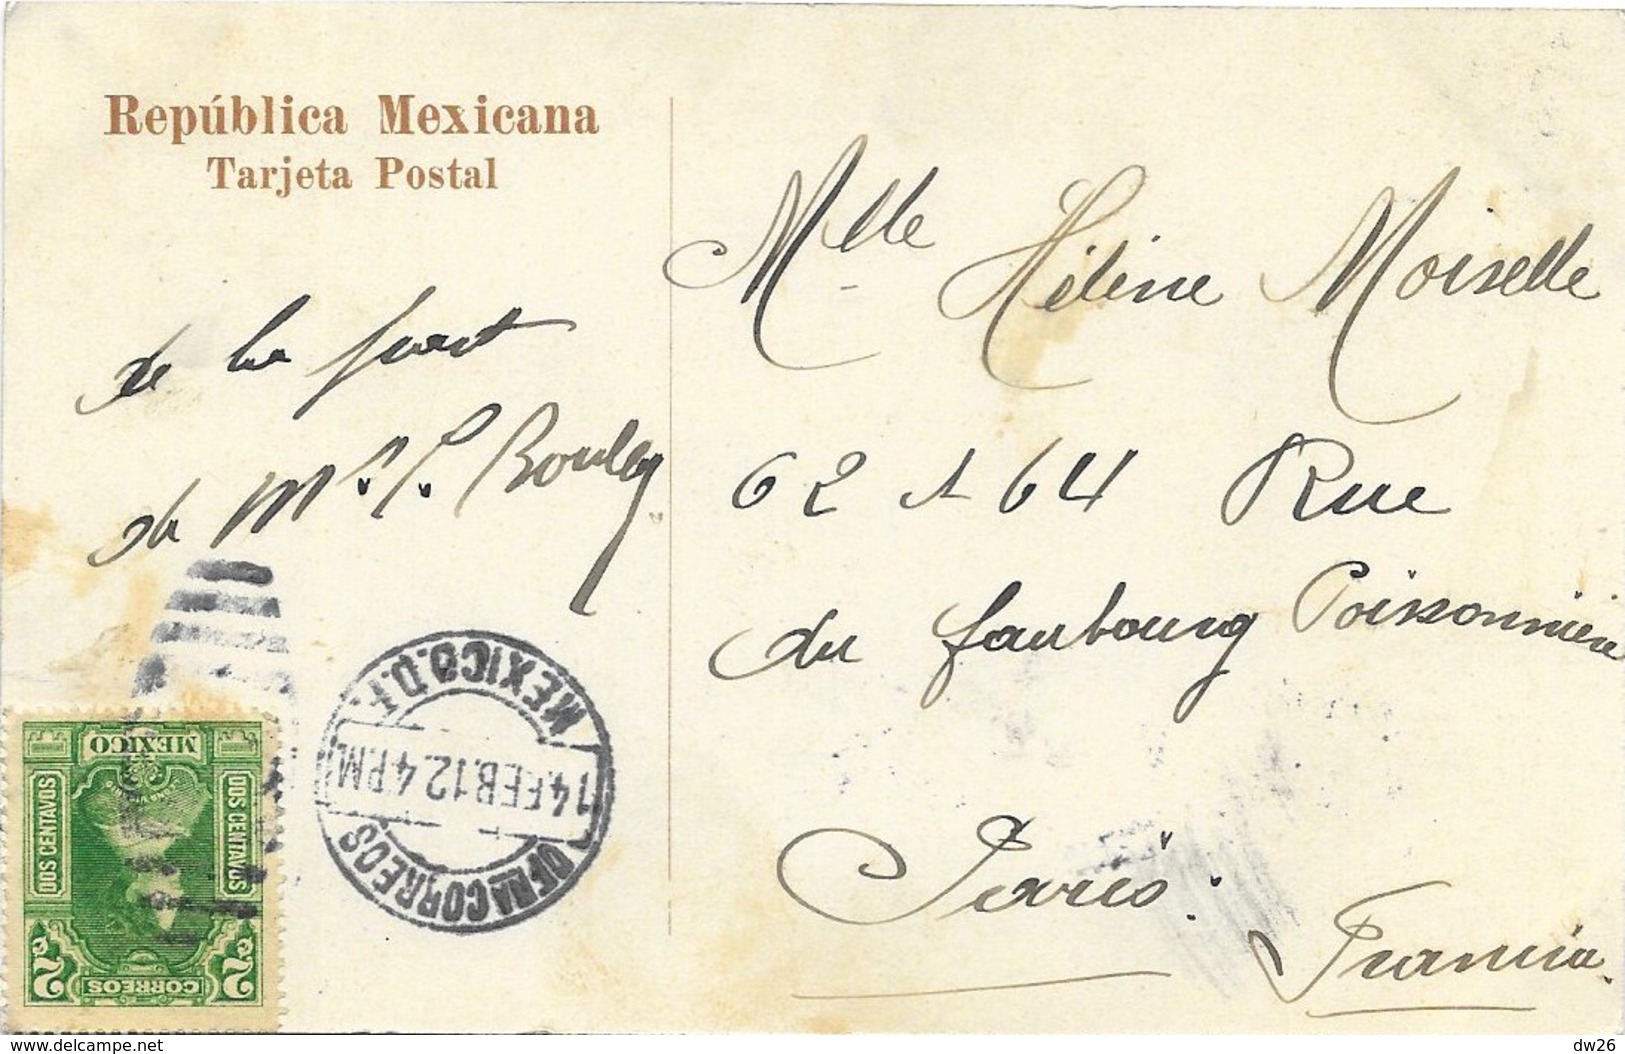 República Mexicana
Tarjeta Postal
de la part
de Mr. P. Bouley
Mlle Hélène Moiselle
62 & 64 Rue
du faubourg Poissonnière
Paris.
Francia.
MEXICO. D.F.
14. FEB. 12. 4 P.M.
CORREOS
MEXICO
DOS CENTAVOS
DOS CENTAVOS
2 2
CORREOS
www.delcampe.net
dw26